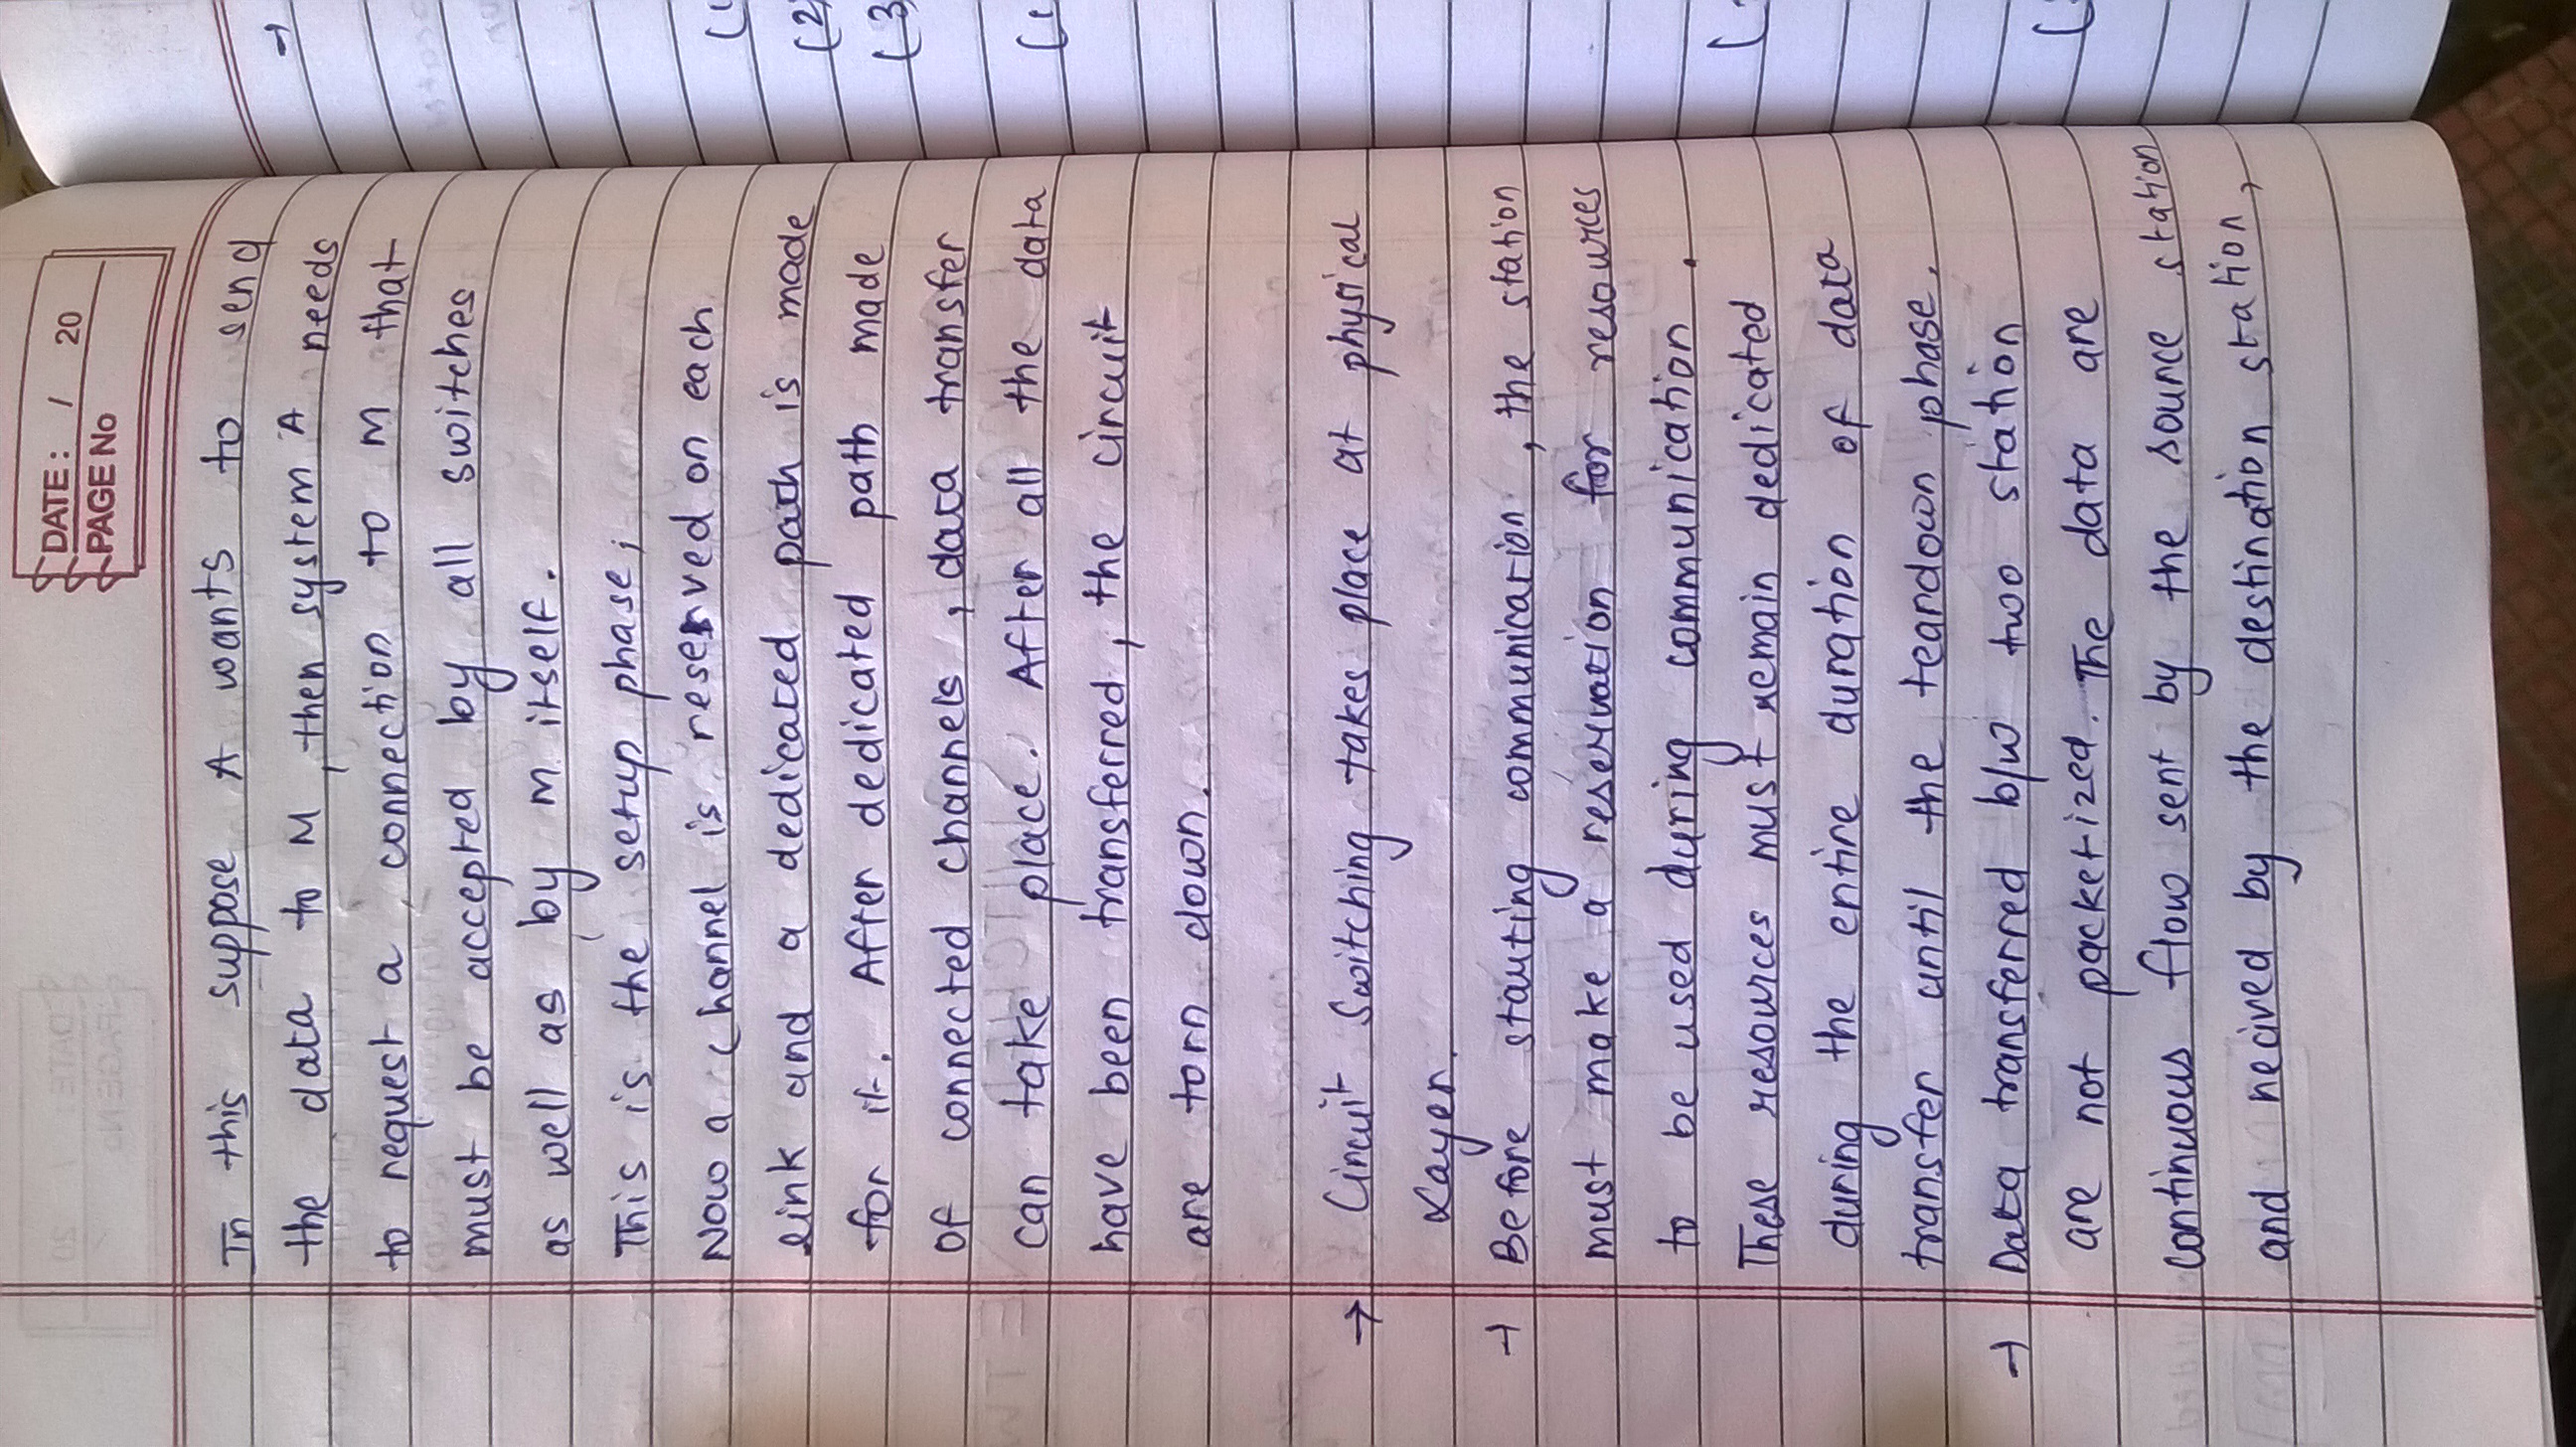 DATE: / 20
PAGE No
In this suppose A wants to send
the data to M, then system A needs
to request a connection to M that
must be accepted by all switches
as well as by M itself.
This is the setup phase;
Now a channel is reserved on each
link and a dedicated path is made
for it. After dedicated path made
of connected channels, data transfer
can take place. After all the data
have been transferred, the circuit
are torn down.
→ Circuit Switching takes place at physical
Layer.
→ Before starting communication, the station
must make a reservation for resources
to be used during communication.
These resources must remain dedicated
during the entire duration of data
transfer until the teardown phase.
→ Data transferred b/w two station
are not packetized. The data are
continuous flow sent by the source station
and recived by the destination station,
→
(2)
(3